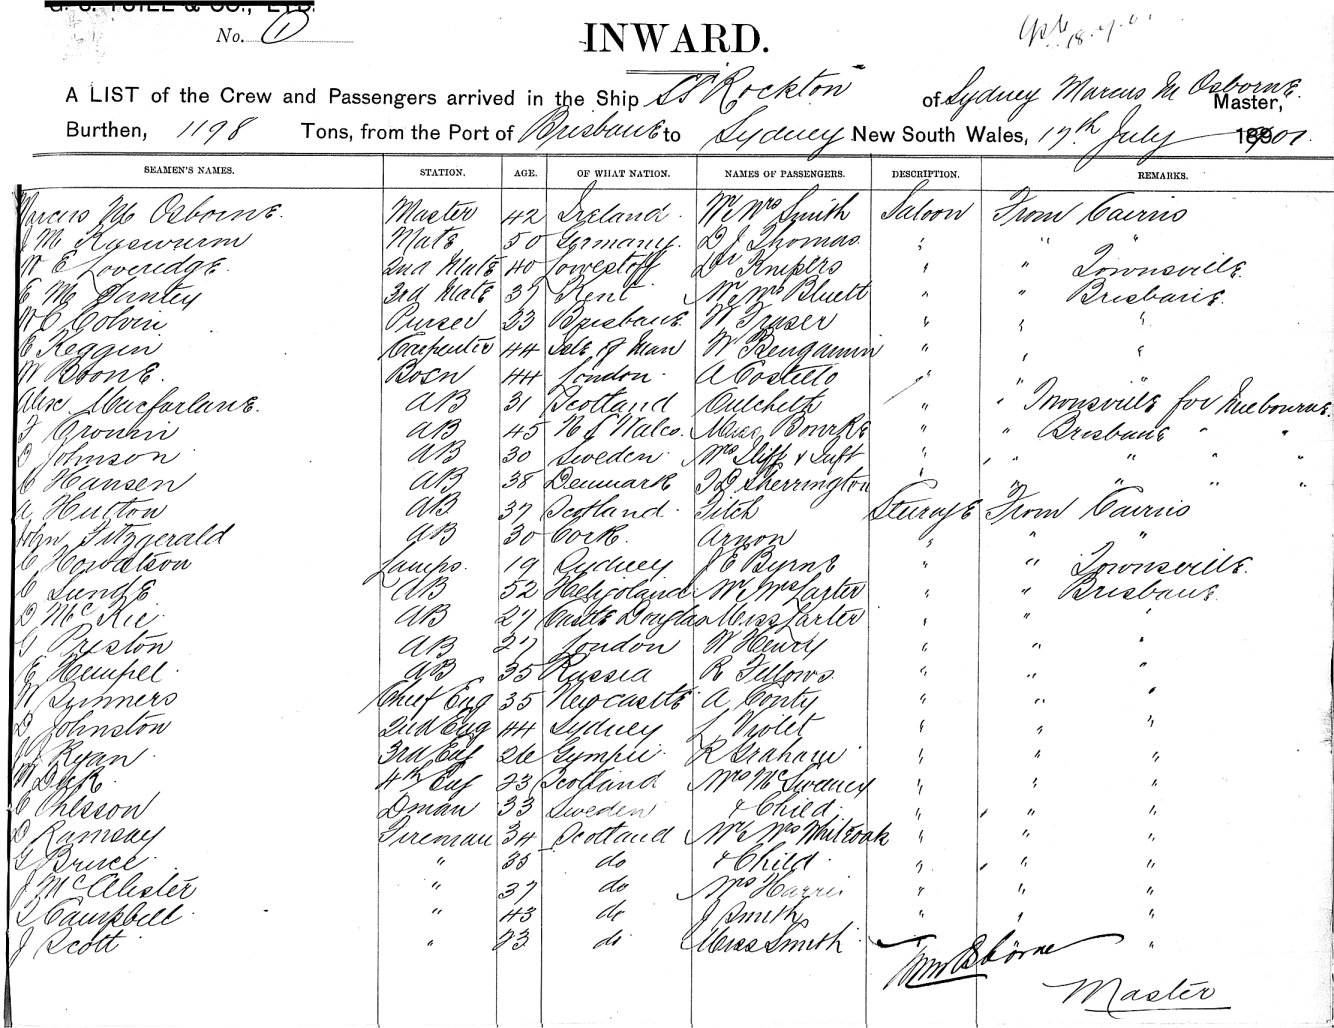 G. S. YUILL & CO., LTD.
No. 1
INWARD.
A LIST of the Crew and Passengers arrived in the Ship SS Rockton of Sydney Marcus M Osborne Master,
Burthen, 1198 Tons, from the Port of Brisbane to Sydney New South Wales, 17th July 1901
SEAMEN'S NAMES. STATION. AGE. OF WHAT NATION. NAMES OF PASSENGERS. DESCRIPTION. REMARKS.
Marcus M Osborne. Master 42 Ireland. Mr & Mrs Smith Saloon From Cairns
J M Raswurm Mate 50 Germany. D J Thomas " " "
W E Loveridge. 2nd Mate 40 Lowestoff Dr Knipers " " Townsville
E M Dantey 3rd Mate 37 Kent Mr & Mrs Bluett " " Brisbane.
W C Colvin Purser 23 Brisbane. W Fraser " " "
E Keggin Carpenter 44 Isle of Man W Bengamin " " "
W Boone. Bosn 44 London. A Costello " " "
Alex. Macfarlane. AB 31 Scotland Culcheth " " Townsville for Melbourne.
T Cronin AB 45 N S Wales. Miss Bourke " " Brisbane " "
O Johnson AB 30 Sweden. Mrs " " " " "
C Hansen AB 38 Denmark T D Sherrington " " " " "
A Hutton AB 37 Scotland. Fitch Steerage From Cairns
John Fitzgerald AB 30 Cork. Arnon " " "
C Howatson Lamps. 19 Sydney J E Byrne " " Townsville.
C Lunde AB 52 Heligoland Mr & Mrs Carter " " Brisbane.
D McKie AB 27 Castle Douglas Miss Carter " " "
G Preston AB 27 London W Henry " " "
E Hempel. AB 35 Russia R Fellows. " " "
W Sunners Chief Eng 35 Newcastle A Conty " " "
D Johnston 2nd Eng 44 Sydney L Violet " " "
Ryan. 3rd Eng 26 Gympie R Graham " " "
W Dick. 4th Eng 23 Scotland Mrs McSwaney " " "
C Ohlsson Dman 33 Sweden & Child. " " "
D Ramsay Fireman 34 Scotland Mr & Mrs Whitcoak " " "
G Bruce. " 35 do & Child. " " "
J McAlister " 37 do Mrs Harris " " "
Campbell " 43 do J Smith " " "
J Scott " 23 do Miss Smith. " "
Osborne
Master